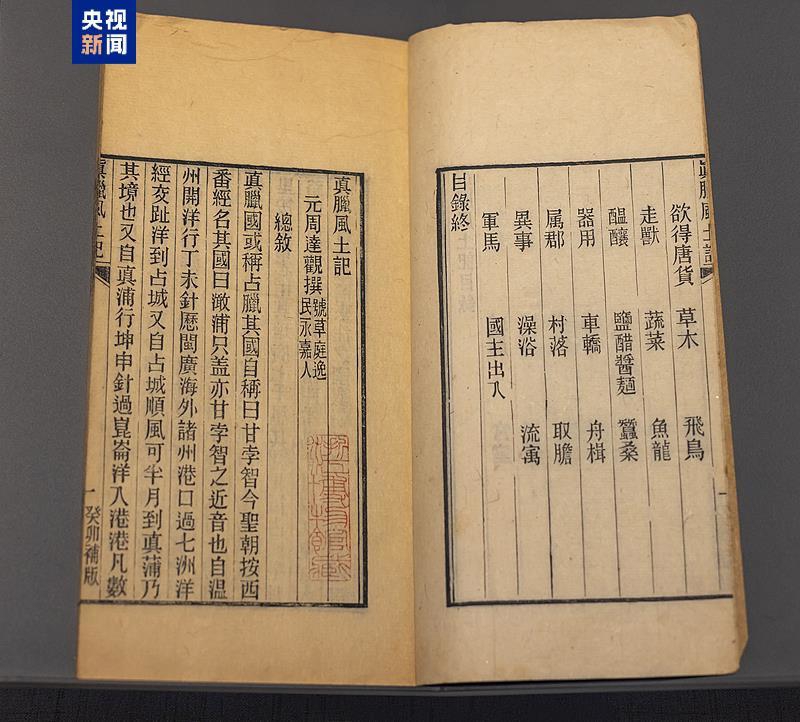 央视
新闻
眞臘風土記
欲得唐貨 草木 飛鳥
走獸 蔬菜 魚龍
醖釀 鹽醋醬麵 蠶桑
器用 車轎 舟楫
属郡 村落 取膽
異事 澡浴 流寓
軍馬 國主出入
目錄終
真臘風土記
元周達觀撰 號草庭逸民永嘉人
總敘
眞臘國或稱占臘其國自稱曰甘孛智今聖朝按西
番經名其國曰澉浦只盖亦甘孛智之近音也自温
州開洋行丁未針歷閩廣海外諸州港口過七洲洋
經交趾洋到占城又自占城順風可半月到眞蒲乃
其境也又自眞浦行坤申針過崑崙洋入港港凡數
眞臘風土記 一 癸卯補版